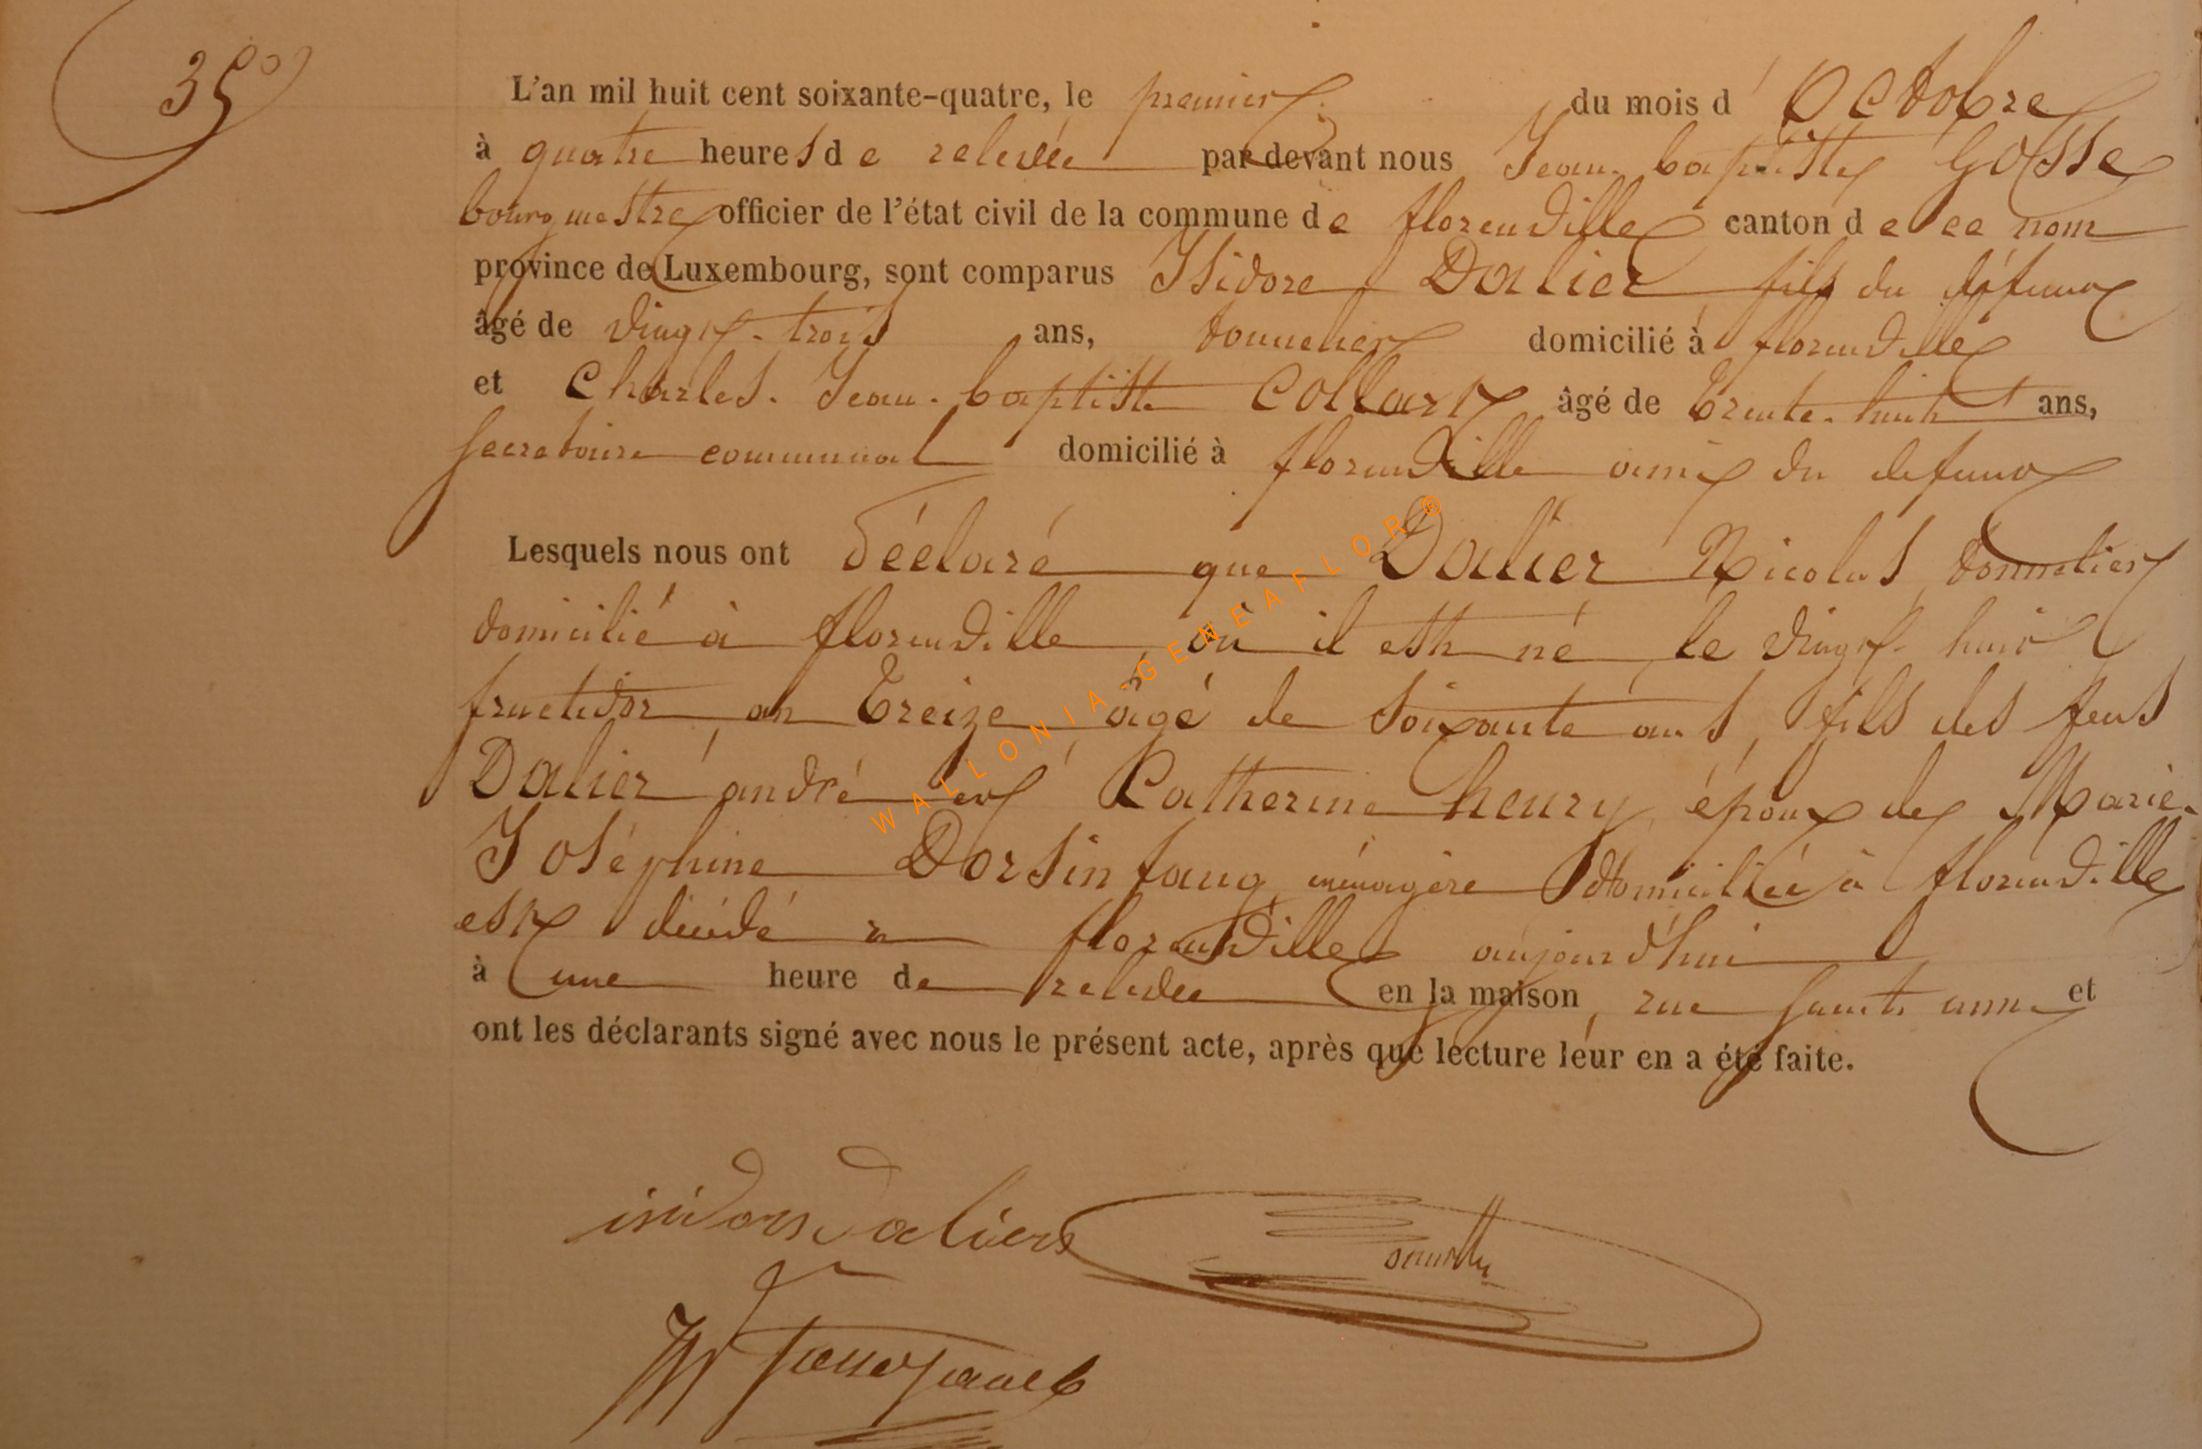 35º
L'an mil huit cent soixante-quatre, le premier du mois d'Octobre
à quatre heures de relevée par devant nous Jean-baptiste Gosse
bourgmestre officier de l'état civil de la commune de florenville canton de ce nom
province de Luxembourg, sont comparus Isidore Dalier fils du défunt
âgé de vingt-trois ans, tonnelier domicilié à florenville
et Charles-Jean-baptiste Collart âgé de trente-huit ans,
secretaire communal domicilié à florenville ami du defunt
Lesquels nous ont déclaré que Dalier Nicolas, tonnelier
domicilié à florenville où il est né, le vingt-huit
fructidor, an treize, âgé de soixante ans, fils des feus
Dalier andré et Catherine henry, époux de Marie-
Joséphine Dorsinfang, ménagère domiciliée à florenville
est décédé à florenville aujourd'hui
à une heure de relevée en la maison, rue sainte anne et
ont les déclarants signé avec nous le présent acte, après que lecture leur en a été faite.
isidore Dalier
WALLONIA-GENEAFLOR®